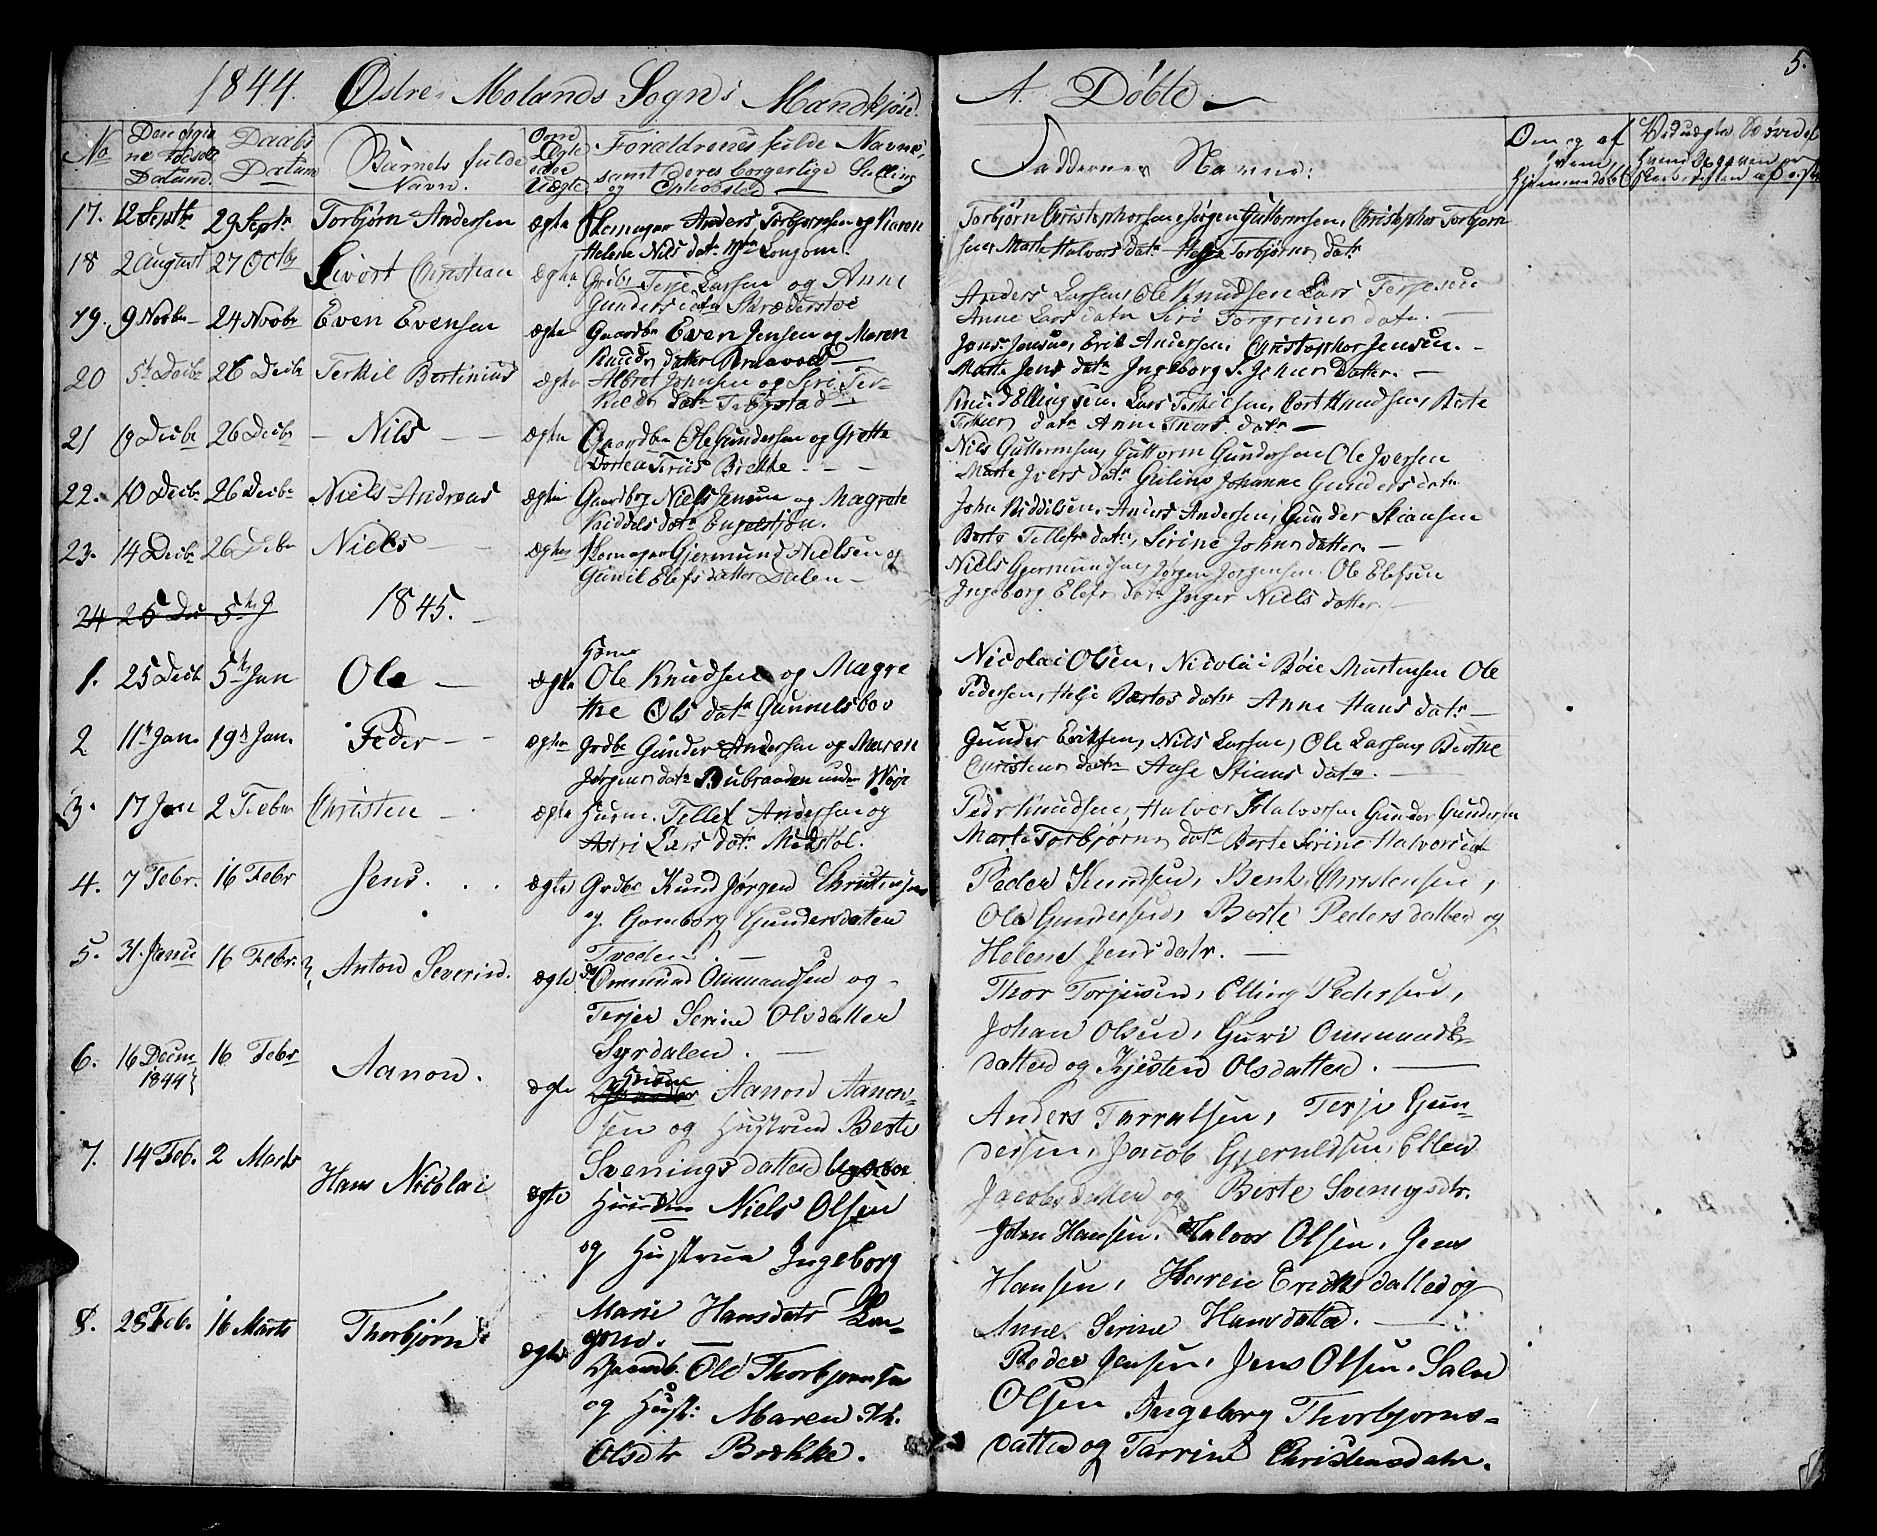 1844. Østre Molands Sogn: Mandkjøn.
A. Døbte.
5.
No
Daabs Datum
Barnets fulde Navn.
Om Ægte eller Uægte
Forældrenes fulde Navne, samt deres borgerlige Stilling og Opholdsted
Faddernes Navne:
Om og af hvem hjemmedøbt
17. 12 Septbr 29 Septr Torbjørn Andersen ægte Anders Torbjørnsen og Karen
Helene Nils datr Longom.
Torbjørn Christophersen Jørgen Guttormsen, Christopher Torbjørn
sen, Marte Halvors datr Helje Torbjørns datr
18 2 August 27 Octbr Sivert Christian ægte Grdbr Terje Larsen og Anne
Gunders datr Skræderstoe
Anders Larsen, Ole Knudsen Lars Terjesen
Anne Lars datr Siri Torgrims datr.
19. 9 Novbr 24 Novbr Even Evensen ægte Gaardbr Even Jensen og Maren
Knuds datter Braavold
Jens Jensen, Erik Andersen, Christopher Jensen.
Marte Jens datr Ingeborg S. Johns datter.
20 5t Decbr 26 Decbr Terkil Bertinius ægte Albret Johnsen og Siri Ter-
kilds datr Trøystad
Knud Ellingsen. Lars Terkilsen, Cort Knudsen, Berte
Terkiels datr Anne Thors datr
21 9 Decbr 26 Decbr Nils ægte Gaardbr Ole Gundersen og Grette
Dortea Friis Brekke
Nils Guttormsen, Guttorm Gundersen Ole Iversen
Marte Ivers datr Johanne Gunders datr
22. 10 Decbr 26 Decbr Niels Andreas ægte Gaardbrg Niels Jensen og Magrete
Kiddels datr Engelstrøn.
John Kiddelsen, Anders Andersen, Gunder Stiansen
Berte Tellefs datr, Sirine Johns datter.
23. 14 Decbr 26 Decbr Niels ægte Gjermund Nielsen og
Gunil Elefs datter Dalen
Niels Gjermundsen, Jørgen Jørgensen. Ole Elefsen
Ingeborg Elefs datr Inger Niels datter.
24 25 Dec 5t J
1845.
1. 25 Decb 5t Jan Ole ægte Ole Knudsen og Magre
the Ols datr Gunnelsbov
Nicolai Olsen, Nicolai Bøie Mortensen Ole
Pedersen, Helje Bertos datr Anne Hans datr
2 11t Jan. 19d Jan. Peder ægte Grdbr Gunder Andersen og Maren
Jørgens datr Bubraaden under Woje
Gunder Eriksen, Nils Larsen, Ole Larsen, Berthe
Christens datr Aase Stians datr.
3. 17 Jan 2 Febr Christen ægte Husm. Tellef Andersen og
Astri Lars datr. Midstøl.
Pedr Knudsen, Halvor Halvorsen Gunder Gundersen
Marte Torbjørns datr Berte Sirine Halvorsdatr
4. 7 Febr. 16 Febr Jens. ægte Grdbr Knud Jørgen Christensen
og Gomborg Gundersdatter
Tveden.
Peder Knudsen, Bent Christensen,
Ole Gundersen, Berte Peders datter og
Helene Jens datr.
5. 31. Janu 16 Febr. Anton Severin. ægte do Ommund Ommundsen og
Terjer Serine Olsdatter
Syrdalen.
Thor Torjusen, Elling Pedersen,
Johan Olsen, Guri Ommunds-
datter og Kjisten Olsdatter.
6. 16 Decm 1844 16 Febr Aanon. ægte Aanon Aanon-
sen og Hustrue Berte
Svenings datter
Anders Tarraldsen, Terje Gun-
dersen, Jacob Gjeruldsen, Ellen
Jacobsdatter og Berte Sveningsdtr.
7. 14 Feb. 2 Marts Hans Nicolai ægte Niels Olsen
og Hustrue Ingeborg
Marie Hansdatr Lon-
gom.
John Hansen, Halvor Olsen, Jens
Hansen, Karen Eriks datter og
Anne Serine Hansdatter.
8. 28 Feb. 16 Marts Thorbjørn ægte Gaardb. Ole Thorbjørnsen
og Hust: Maren Kk.
Olsdtr Brække.
Peder Jensen, Jens Olsen, Salve
Olsen Ingeborg Thorbjørns-
datter og Tarrine Christensdatr.